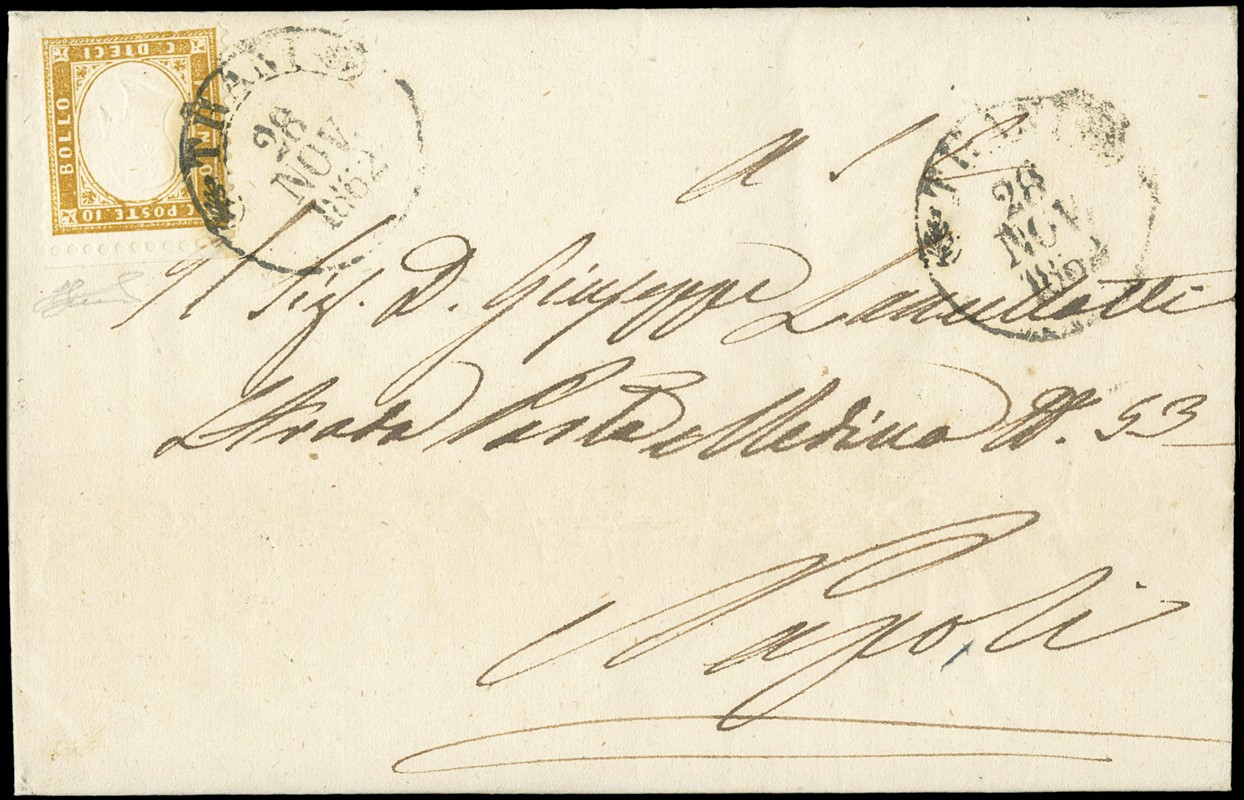 C. DIECI
BOLLO
C. POSTE 10
TRANI
28
NOV.
1862
TRANI
28
NOV.
1862
A S. E.
Il Sig. D. Giuseppe
Strada Porta Medina N°. 53
Napoli